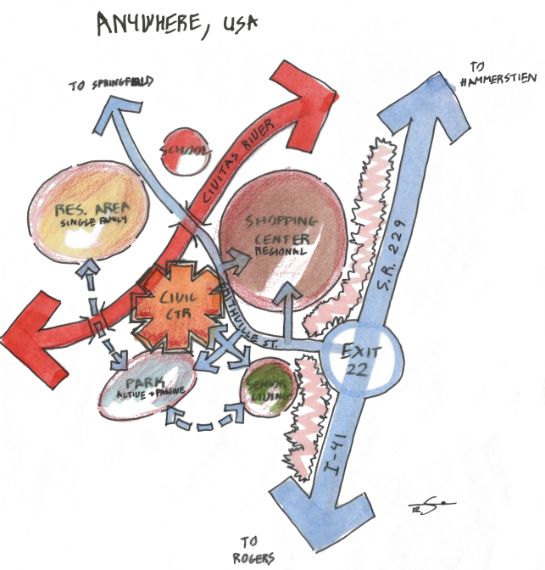 ANYWHERE, USA
TO SPRINGFIELD
TO
HAMMERSTIEN
SCHOOL
CIVITAS RIVER
RES. AREA
SINGLE FAMILY
SHOPPING
CENTER
REGIONAL
S.R. 229
CIVIC
CTR
SMITHVILLE ST.
EXIT
22
PARK
ACTIVE + PASSIVE
SENIOR
LIVING
I-41
TO
ROGERS